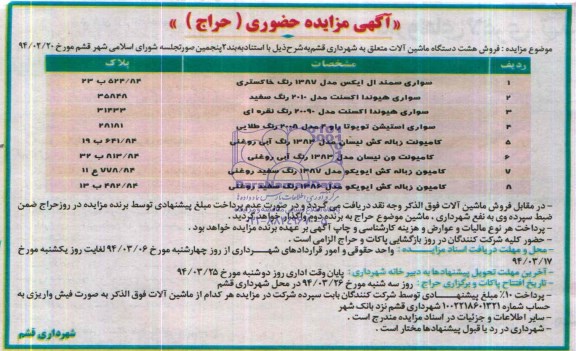 «آگهی مزایده حضوری ( حراج ) »
موضوع مزایده : فروش هشت دستگاه ماشین آلات متعلق به شهرداری قشم به شرح ذیل با استناد به بند ۲ پنجمین صورتجلسه شورای اسلامی شهر قشم مورخ ۹۴/۰۲/۲۰
ردیف مشخصات پلاک
۱ سواری سمند ال ایکس مدل ۱۳۸۷ رنگ خاکستری ۵۲۴/۸۴ ب ۲۳
۲ سواری هیوندا اکسنت مدل ۲۰۱۰ رنگ سفید ۳۵۸۴۸
۳ سواری هیوندا اکسنت مدل ۲۰۰۹ رنگ نقره ای ۳۱۴۳۳
۴ سواری استیشن تویوتا مدل ۲۰۰۸ رنگ طلایی ۲۸۱۸۱
۵ کامیونت زباله کش نیسان مدل ۱۳۸۳ رنگ آبی روغنی ۶۴۱/۸۴ ب ۱۹
۶ کامیونت ون نیسان مدل ۱۳۸۳ رنگ آبی روغنی ۸۱۳/۸۴ ب ۳۲
۷ کامیون زباله کش ایویکو مدل ۱۳۸۷ رنگ سفید روغنی ۷۷۸/۸۴ ع ۱۱
۸ کامیون زباله کش ایویکو مدل رنگ سفید روغنی ۴۸۶/۸۴ ب ۱۳
- در مقابل فروش ماشین آلات فوق الذکر وجه نقد دریافت می گردد و در صورت عدم پرداخت مبلغ پیشنهادی توسط برنده مزایده در روز حراج ضمن
ضبط سپرده وی به نفع شهرداری ، ماشین موضوع حراج به برنده دوم واگذار خواهد گردید .
- پرداخت هر نوع مالیات و عوارض و هزینه کارشناسی و چاپ آگهی بر عهده برنده مزایده خواهد بود .
- حضور کلیه شرکت کنندگان در روز بازگشایی پاکات و حراج الزامی است .
محل و مهلت دریافت اسناد مزایده : واحد حقوقی و امور قراردادهای شهرداری از روز چهارشنبه مورخ ۹۴/۰۳/۰۶ لغایت روز یکشنبه مورخ
۹۴/۰۳/۱۷
آخرین مهلت تحویل پیشنهادها به دبیر خانه شهرداری : پایان وقت اداری روز دوشنبه مورخ ۹۴/۰۳/۲۵
تاریخ افتتاح پاکات و برگزاری حراج : روز سه شنبه مورخ ۹۴/۰۳/۲۶ در محل شهرداری قشم
- پرداخت ۱۰٪ مبلغ پیشنهادی توسط شرکت کنندگان بابت سپرده شرکت در مزایده هر کدام از ماشین آلات فوق الذکر به صورت فیش واریزی به
حساب شماره ۱۰۰۲۲۱۸۶۰۱۳۲۱ شهرداری قشم نزد بانک شهر
- سایر اطلاعات و جزئیات در اسناد مزایده مندرج است .
- شهرداری در رد یا قبول پیشنهادها مختار است .
شهرداری قشم